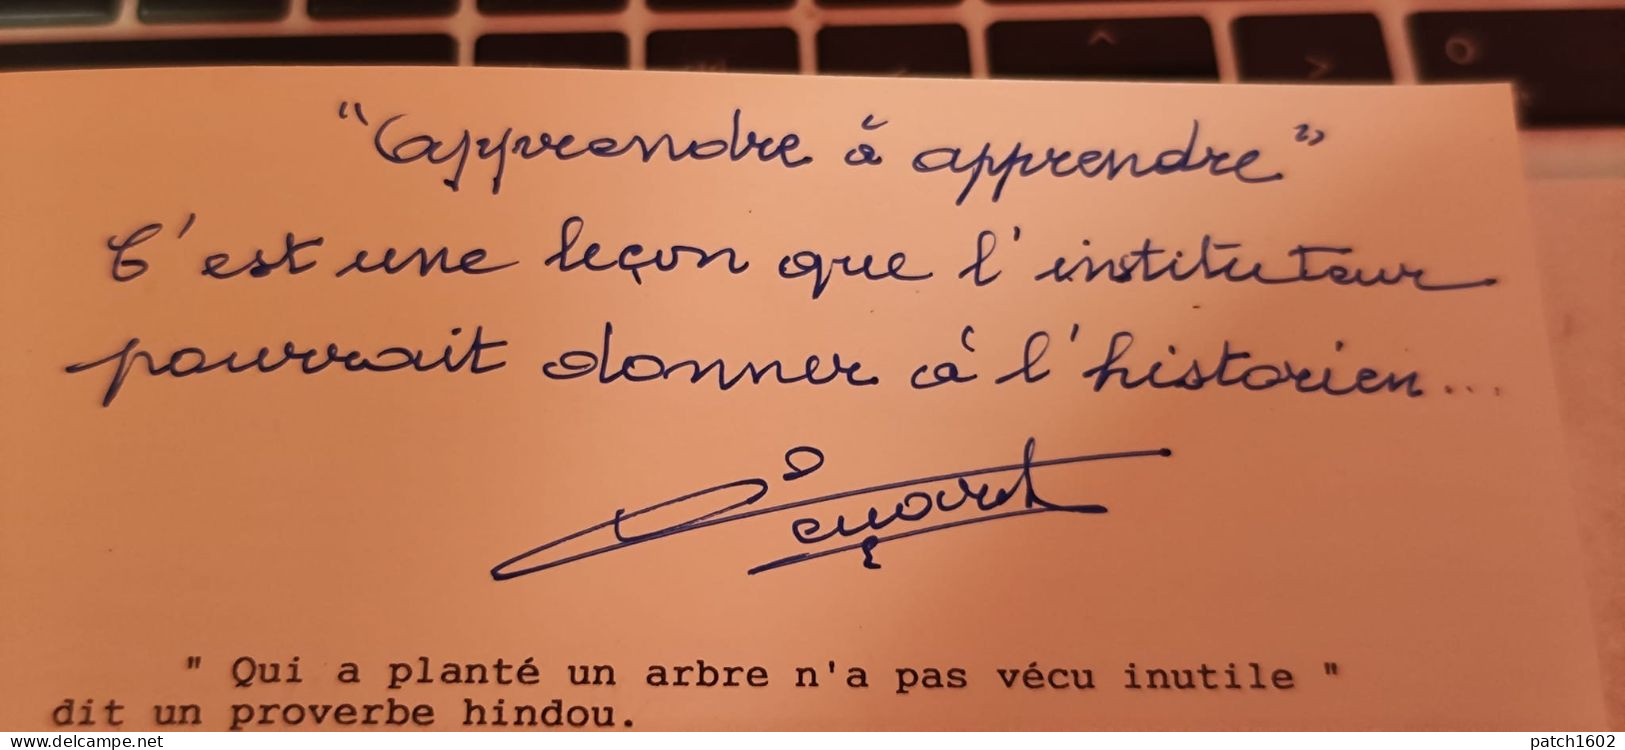 "apprendre à apprendre"
C'est une leçon que l'instituteur
pourrait donner à l'historien...
" Qui a planté un arbre n'a pas vécu inutile "
dit un proverbe hindou.
https://www.delcampe.net
patch1602